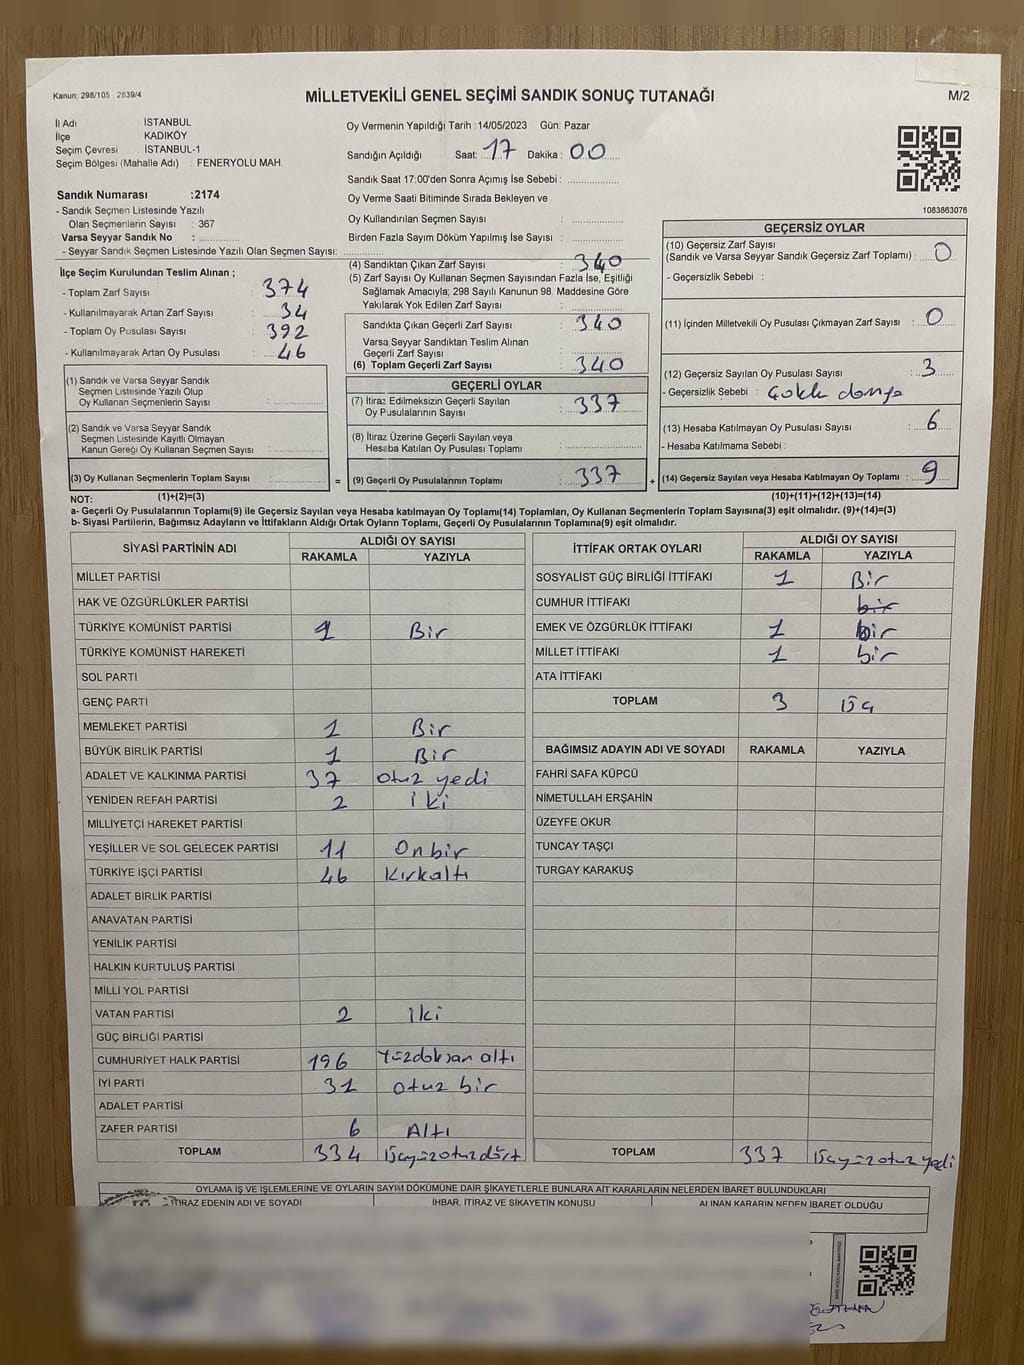 Kanun: 298/105 2839/4
MİLLETVEKİLİ GENEL SEÇİMİ SANDIK SONUÇ TUTANAĞI
M/2
İl Adı İSTANBUL
İlçe KADIKÖY
Seçim Çevresi İSTANBUL-1
Seçim Bölgesi (Mahalle Adı) : FENERYOLU MAH.
Sandık Numarası :2174
- Sandık Seçmen Listesinde Yazılı
Olan Seçmenlerin Sayısı : 367
Varsa Seyyar Sandık No :
- Seyyar Sandık Seçmen Listesinde Yazılı Olan Seçmen Sayısı:
İlçe Seçim Kurulundan Teslim Alınan ;
- Toplam Zarf Sayısı : 374
- Kullanılmayarak Artan Zarf Sayısı : 34
- Toplam Oy Pusulası Sayısı : 392
- Kullanılmayarak Artan Oy Pusulası : 46
(1) Sandık ve Varsa Seyyar Sandık
Seçmen Listesinde Yazılı Olup
Oy Kullanan Seçmenlerin Sayısı :
(2) Sandık ve Varsa Seyyar Sandık
Seçmen Listesinde Kayıtlı Olmayan
Kanun Gereği Oy Kullanan Seçmen Sayısı :
(3) Oy Kullanan Seçmenlerin Toplam Sayısı :
Oy Vermenin Yapıldığı Tarih :14/05/2023 Gün: Pazar
Sandığın Açıldığı Saat: 17 Dakika : 00
Sandık Saat 17:00'den Sonra Açımış İse Sebebi :
Oy Verme Saati Bitiminde Sırada Bekleyen ve
Oy Kullandırılan Seçmen Sayısı :
Birden Fazla Sayım Döküm Yapılmış İse Sayısı :
(4) Sandıktan Çıkan Zarf Sayısı : 340
(5) Zarf Sayısı Oy Kullanan Seçmen Sayısından Fazla İse, Eşitliği
Sağlamak Amacıyla; 298 Sayılı Kanunun 98. Maddesine Göre
Yakılarak Yok Edilen Zarf Sayısı :
Sandıkta Çıkan Geçerli Zarf Sayısı : 340
Varsa Seyyar Sandıktan Teslim Alınan
Geçerli Zarf Sayısı :
(6) Toplam Geçerli Zarf Sayısı : 340
GEÇERLİ OYLAR
(7) İtiraz Edilmeksizin Geçerli Sayılan
Oy Pusulalarının Sayısı : 337
(8) İtiraz Üzerine Geçerli Sayılan veya
Hesaba Katılan Oy Pusulası Toplamı :
= (9) Geçerli Oy Pusulalarının Toplamı : 337 +
1083863076
GEÇERSİZ OYLAR
(10) Geçersiz Zarf Sayısı
(Sandık ve Varsa Seyyar Sandık Geçersiz Zarf Toplamı) : 0
- Geçersizlik Sebebi :
(11) İçinden Milletvekili Oy Pusulası Çıkmayan Zarf Sayısı : 0
(12) Geçersiz Sayılan Oy Pusulası Sayısı : 3
- Geçersizlik Sebebi :
(13) Hesaba Katılmayan Oy Pusulası Sayısı : 6
- Hesaba Katılmama Sebebi :
(14) Geçersiz Sayılan veya Hesaba Katılmayan Oy Toplamı : 9
NOT: (1)+(2)=(3) (10)+(11)+(12)+(13)=(14)
a- Geçerli Oy Pusulalarının Toplamı(9) ile Geçersiz Sayılan veya Hesaba katılmayan Oy Toplamı(14) Toplamları, Oy Kullanan Seçmenlerin Toplam Sayısına(3) eşit olmalıdır. (9)+(14)=(3)
b- Siyasi Partilerin, Bağımsız Adayların ve İttifakların Aldığı Ortak Oyların Toplamı, Geçerli Oy Pusulalarının Toplamına(9) eşit olmalıdır.
SİYASİ PARTİNİN ADI ALDIĞI OY SAYISI
RAKAMLA YAZIYLA
MİLLET PARTİSİ
HAK VE ÖZGÜRLÜKLER PARTİSİ
TÜRKİYE KOMÜNİST PARTİSİ 1 Bir
TÜRKİYE KOMÜNİST HAREKETİ
SOL PARTİ
GENÇ PARTİ
MEMLEKET PARTİSİ 1 Bir
BÜYÜK BİRLİK PARTİSİ 1 Bir
ADALET VE KALKINMA PARTİSİ 37 otuz yedi
YENİDEN REFAH PARTİSİ 2 iki
MİLLİYETÇİ HAREKET PARTİSİ
YEŞİLLER VE SOL GELECEK PARTİSİ 11 Onbir
TÜRKİYE İŞÇİ PARTİSİ 46 Kırkaltı
ADALET BİRLİK PARTİSİ
ANAVATAN PARTİSİ
YENİLİK PARTİSİ
HALKIN KURTULUŞ PARTİSİ
MİLLİ YOL PARTİSİ
VATAN PARTİSİ 2 iki
GÜÇ BİRLİĞİ PARTİSİ
CUMHURİYET HALK PARTİSİ 196 Yüzdoksan altı
İYİ PARTİ 31 otuz bir
ADALET PARTİSİ
ZAFER PARTİSİ 6 Altı
TOPLAM 334 Üçyüzotuzdört
İTTİFAK ORTAK OYLARI ALDIĞI OY SAYISI
RAKAMLA YAZIYLA
SOSYALİST GÜÇ BİRLİĞİ İTTİFAKI 1 Bir
CUMHUR İTTİFAKI bir
EMEK VE ÖZGÜRLÜK İTTİFAKI 1 bir
MİLLET İTTİFAKI 1 bir
ATA İTTİFAKI
TOPLAM 3 Üç
BAĞIMSIZ ADAYIN ADI VE SOYADI RAKAMLA YAZIYLA
FAHRİ SAFA KÜPCÜ
NİMETULLAH ERŞAHİN
ÜZEYFE OKUR
TUNCAY TAŞÇI
TURGAY KARAKUŞ
TOPLAM 337 Üçyüzotuz yedi
OYLAMA İŞ VE İŞLEMLERİNE VE OYLARIN SAYIM DÖKÜMÜNE DAİR ŞİKAYETLERLE BUNLARA AİT KARARLARIN NELERDEN İBARET BULUNDUKLARI
İTİRAZ EDENİN ADI VE SOYADI İHBAR, İTİRAZ VE ŞİKAYETİN KONUSU ALINAN KARARIN NEDEN İBARET OLDUĞU